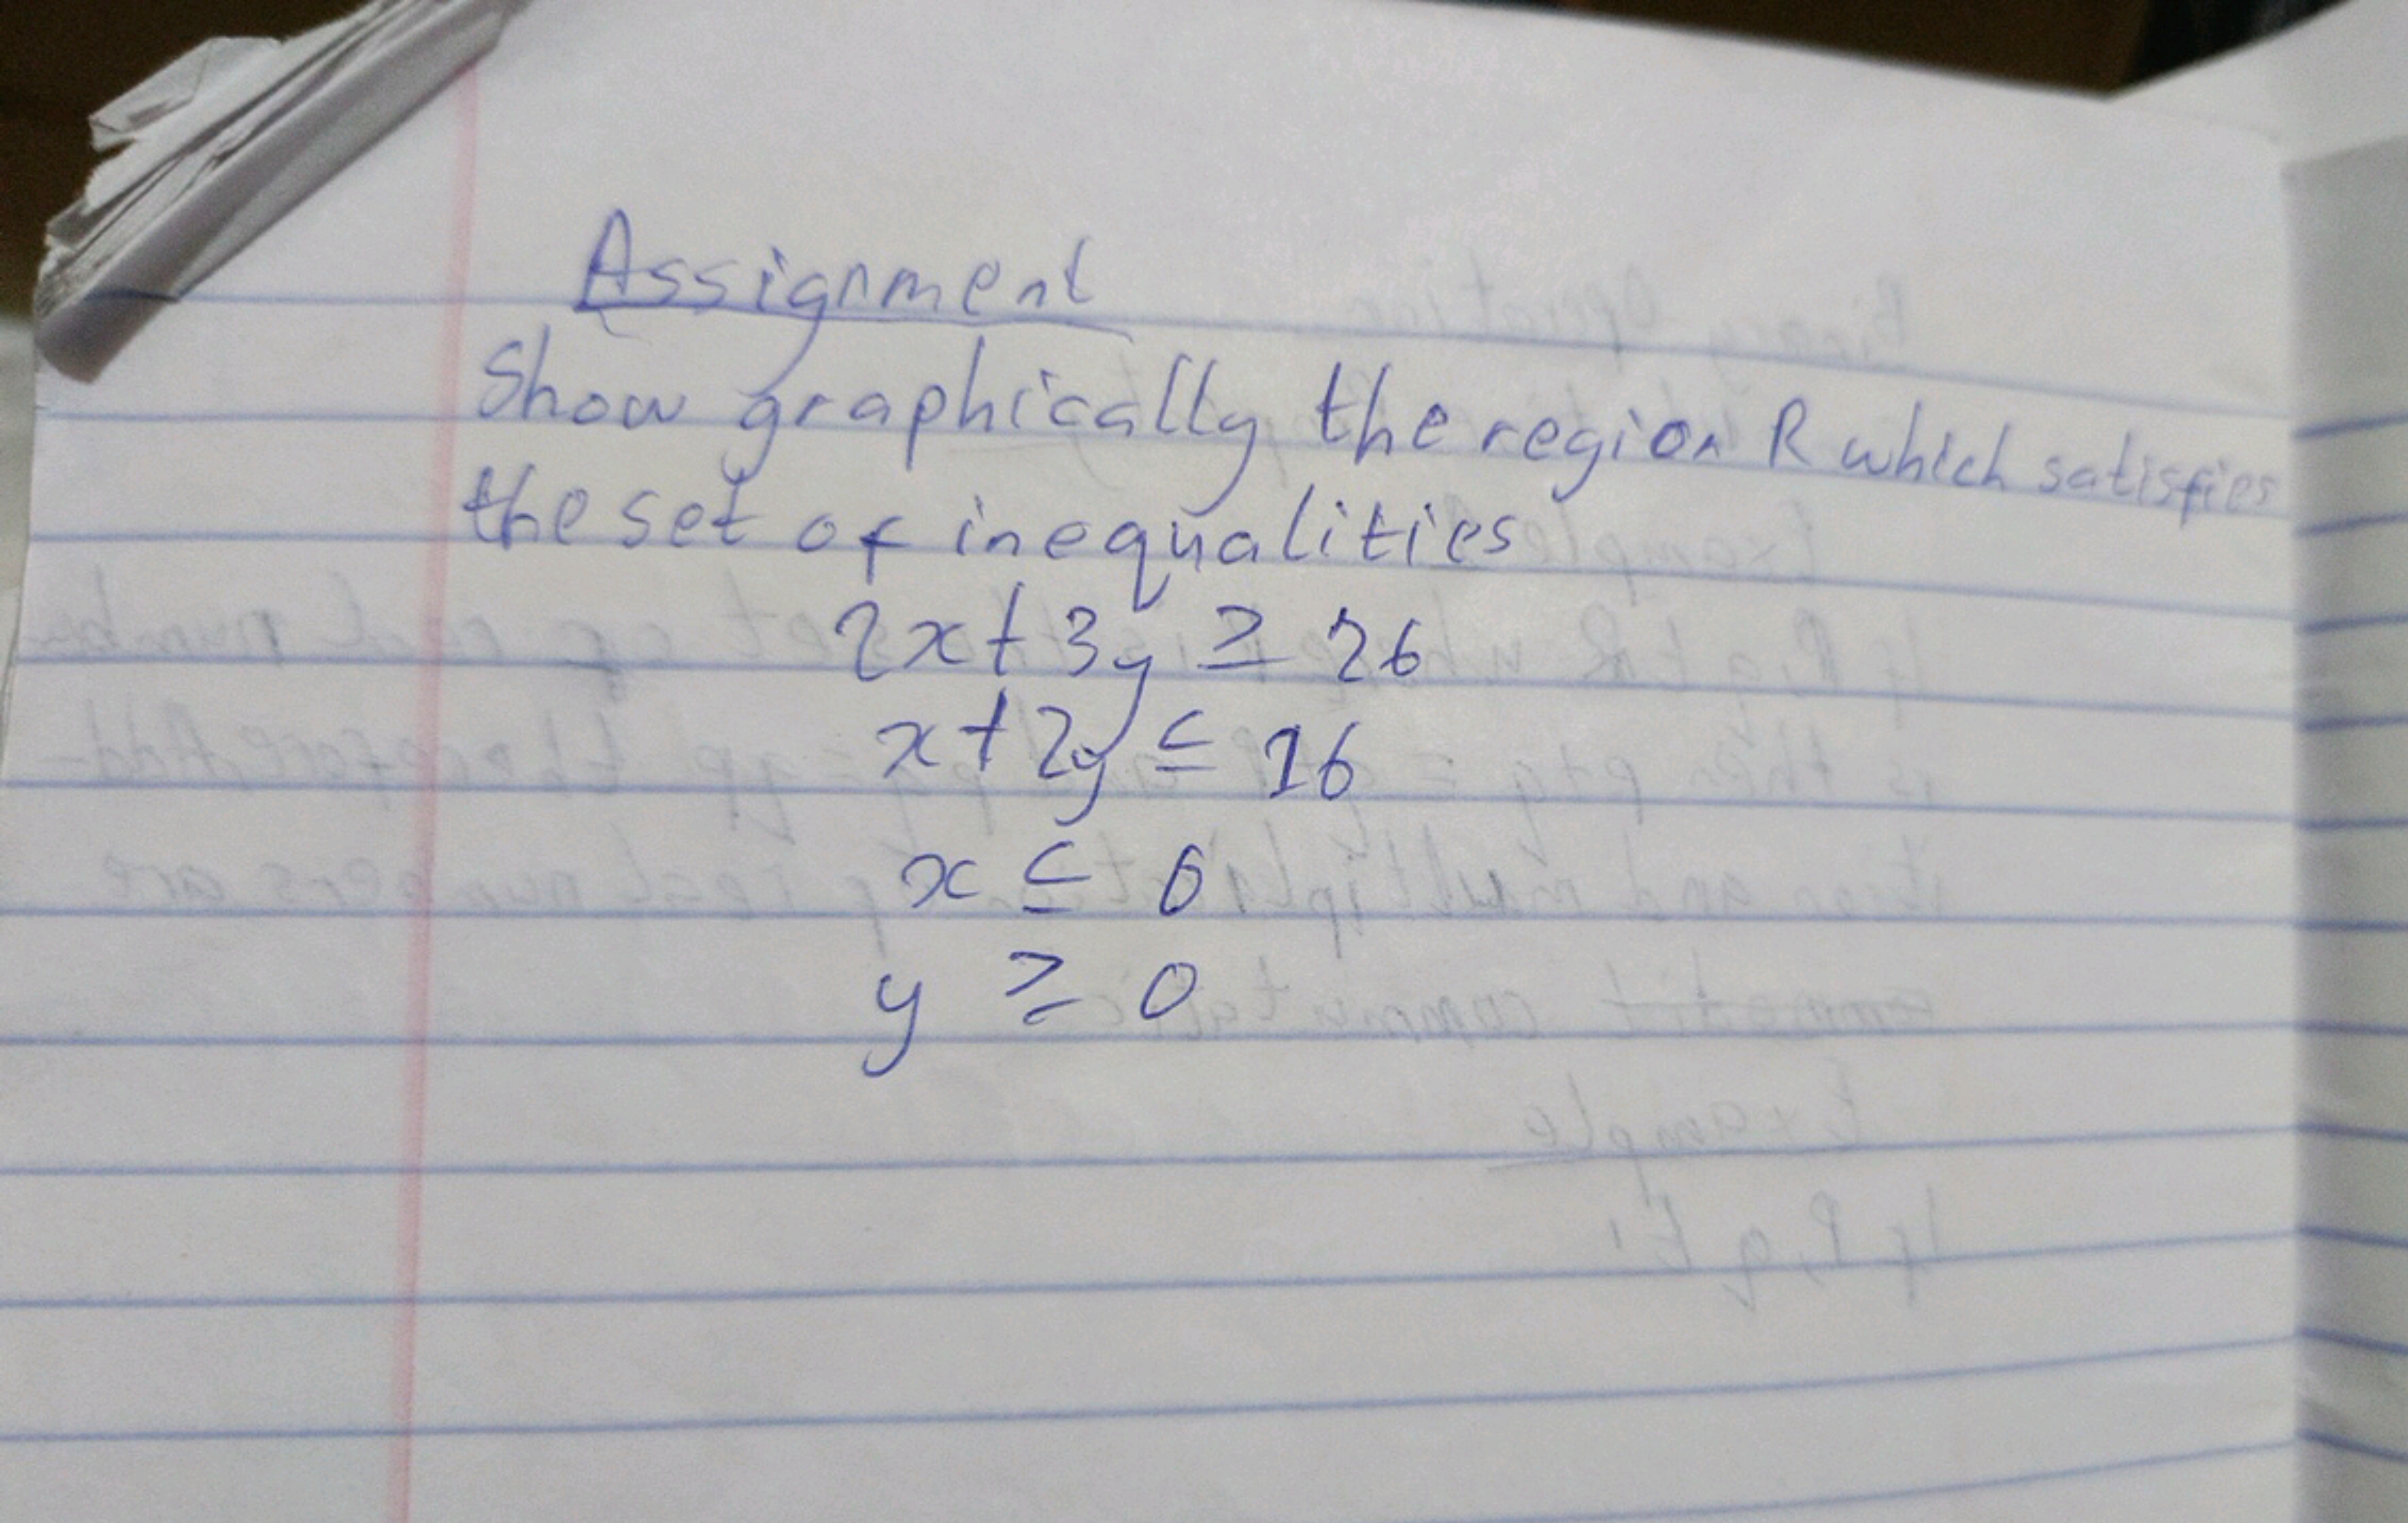 Assignment
Show graphically the region R which satisfies
the set of inequalities
2x+3y ≥ 26
x+2y ≤ 16
x ≤ 6
y ≥ 0